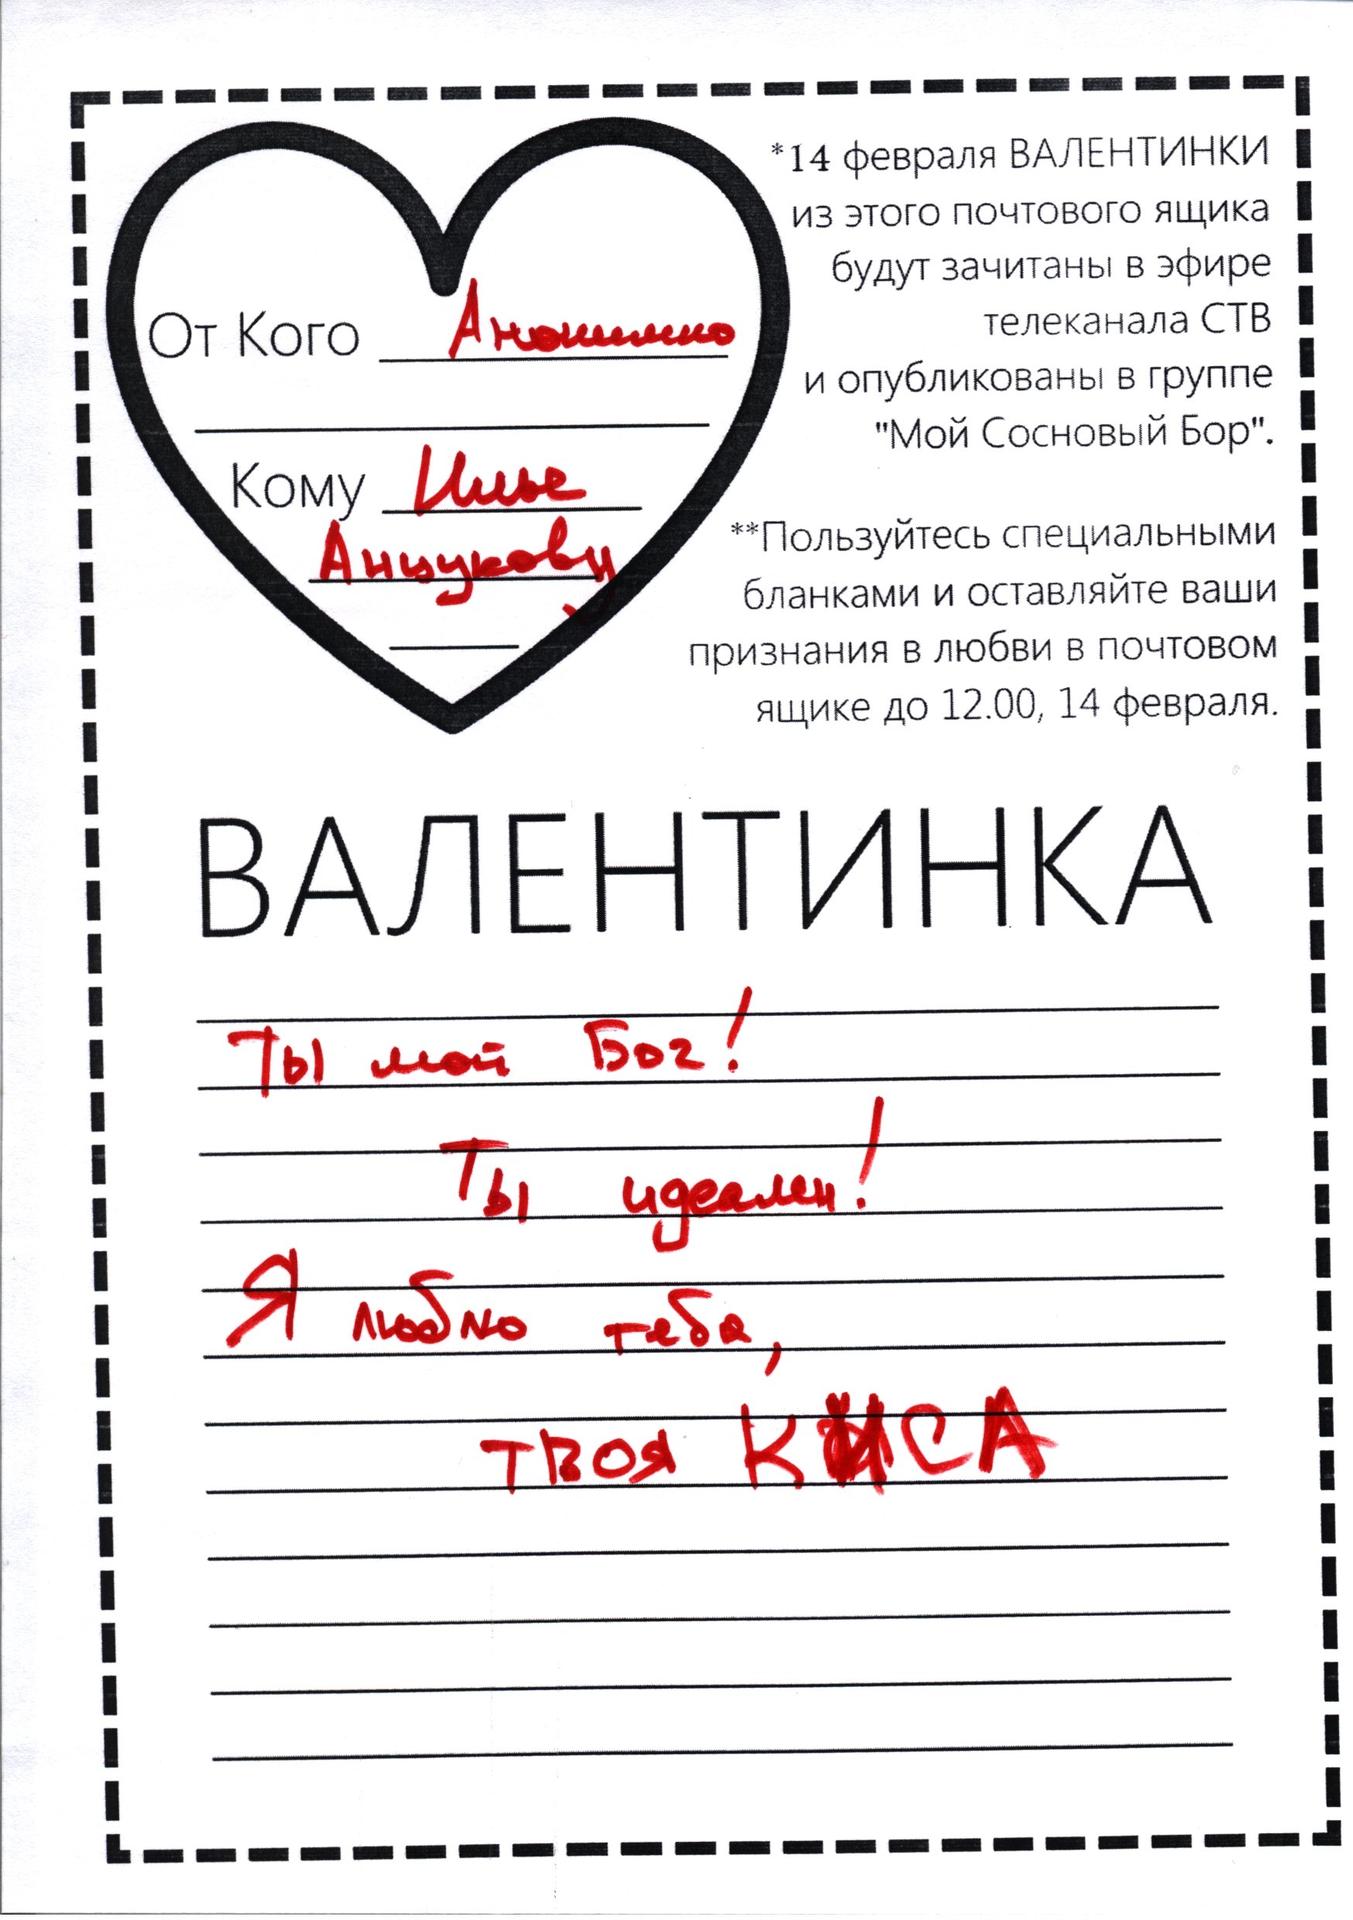 *14 февраля ВАЛЕНТИНКИ
из этого почтового ящика
будут зачитаны в эфире
телеканала СТВ
и опубликованы в группе
"Мой Сосновый Бор".
**Пользуйтесь специальными
бланками и оставляйте ваши
признания в любви в почтовом
ящике до 12.00, 14 февраля.
От Кого Анонимно
Кому Илье
Анцукову
ВАЛЕНТИНКА
Ты мой Бог!
Ты идеален!
Я люблю тебя,
твоя КИСА